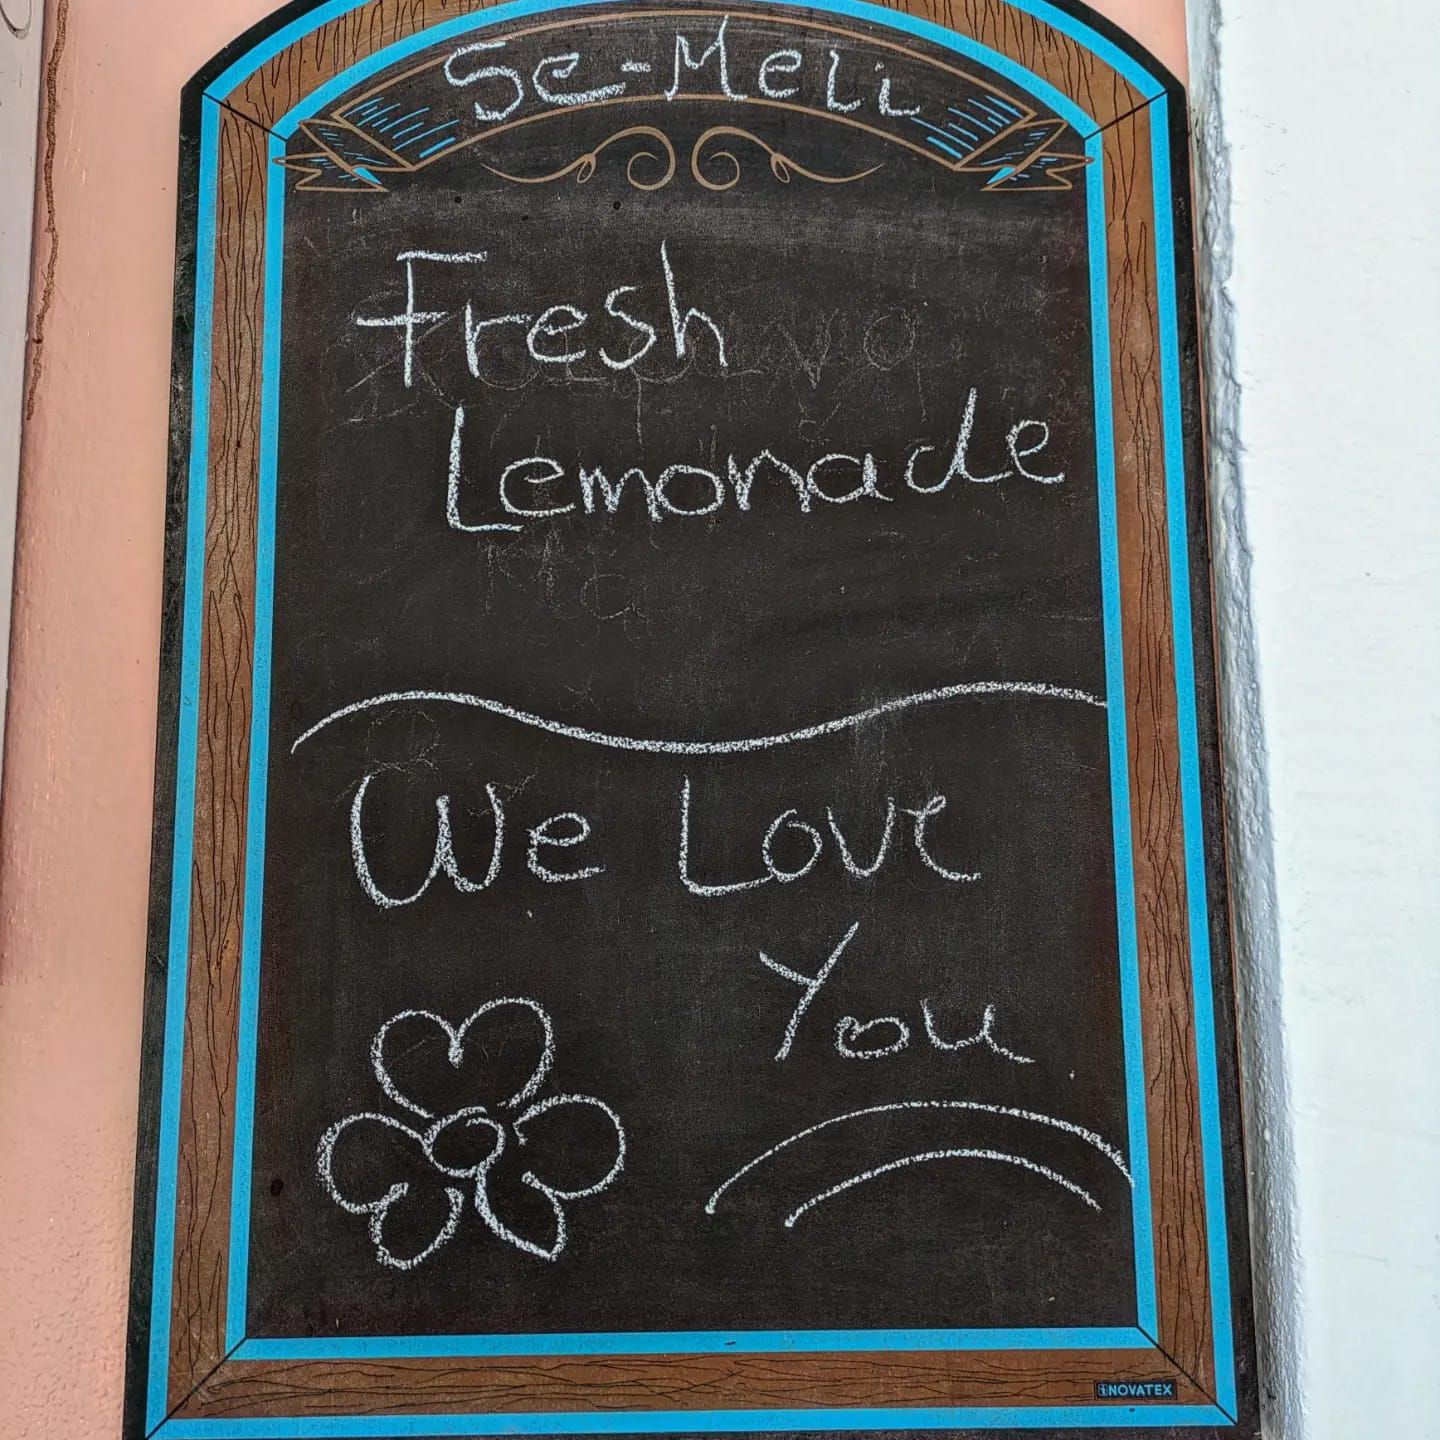 Se-Meli
Fresh
Lemonade
We Love
You
iNOVATEX